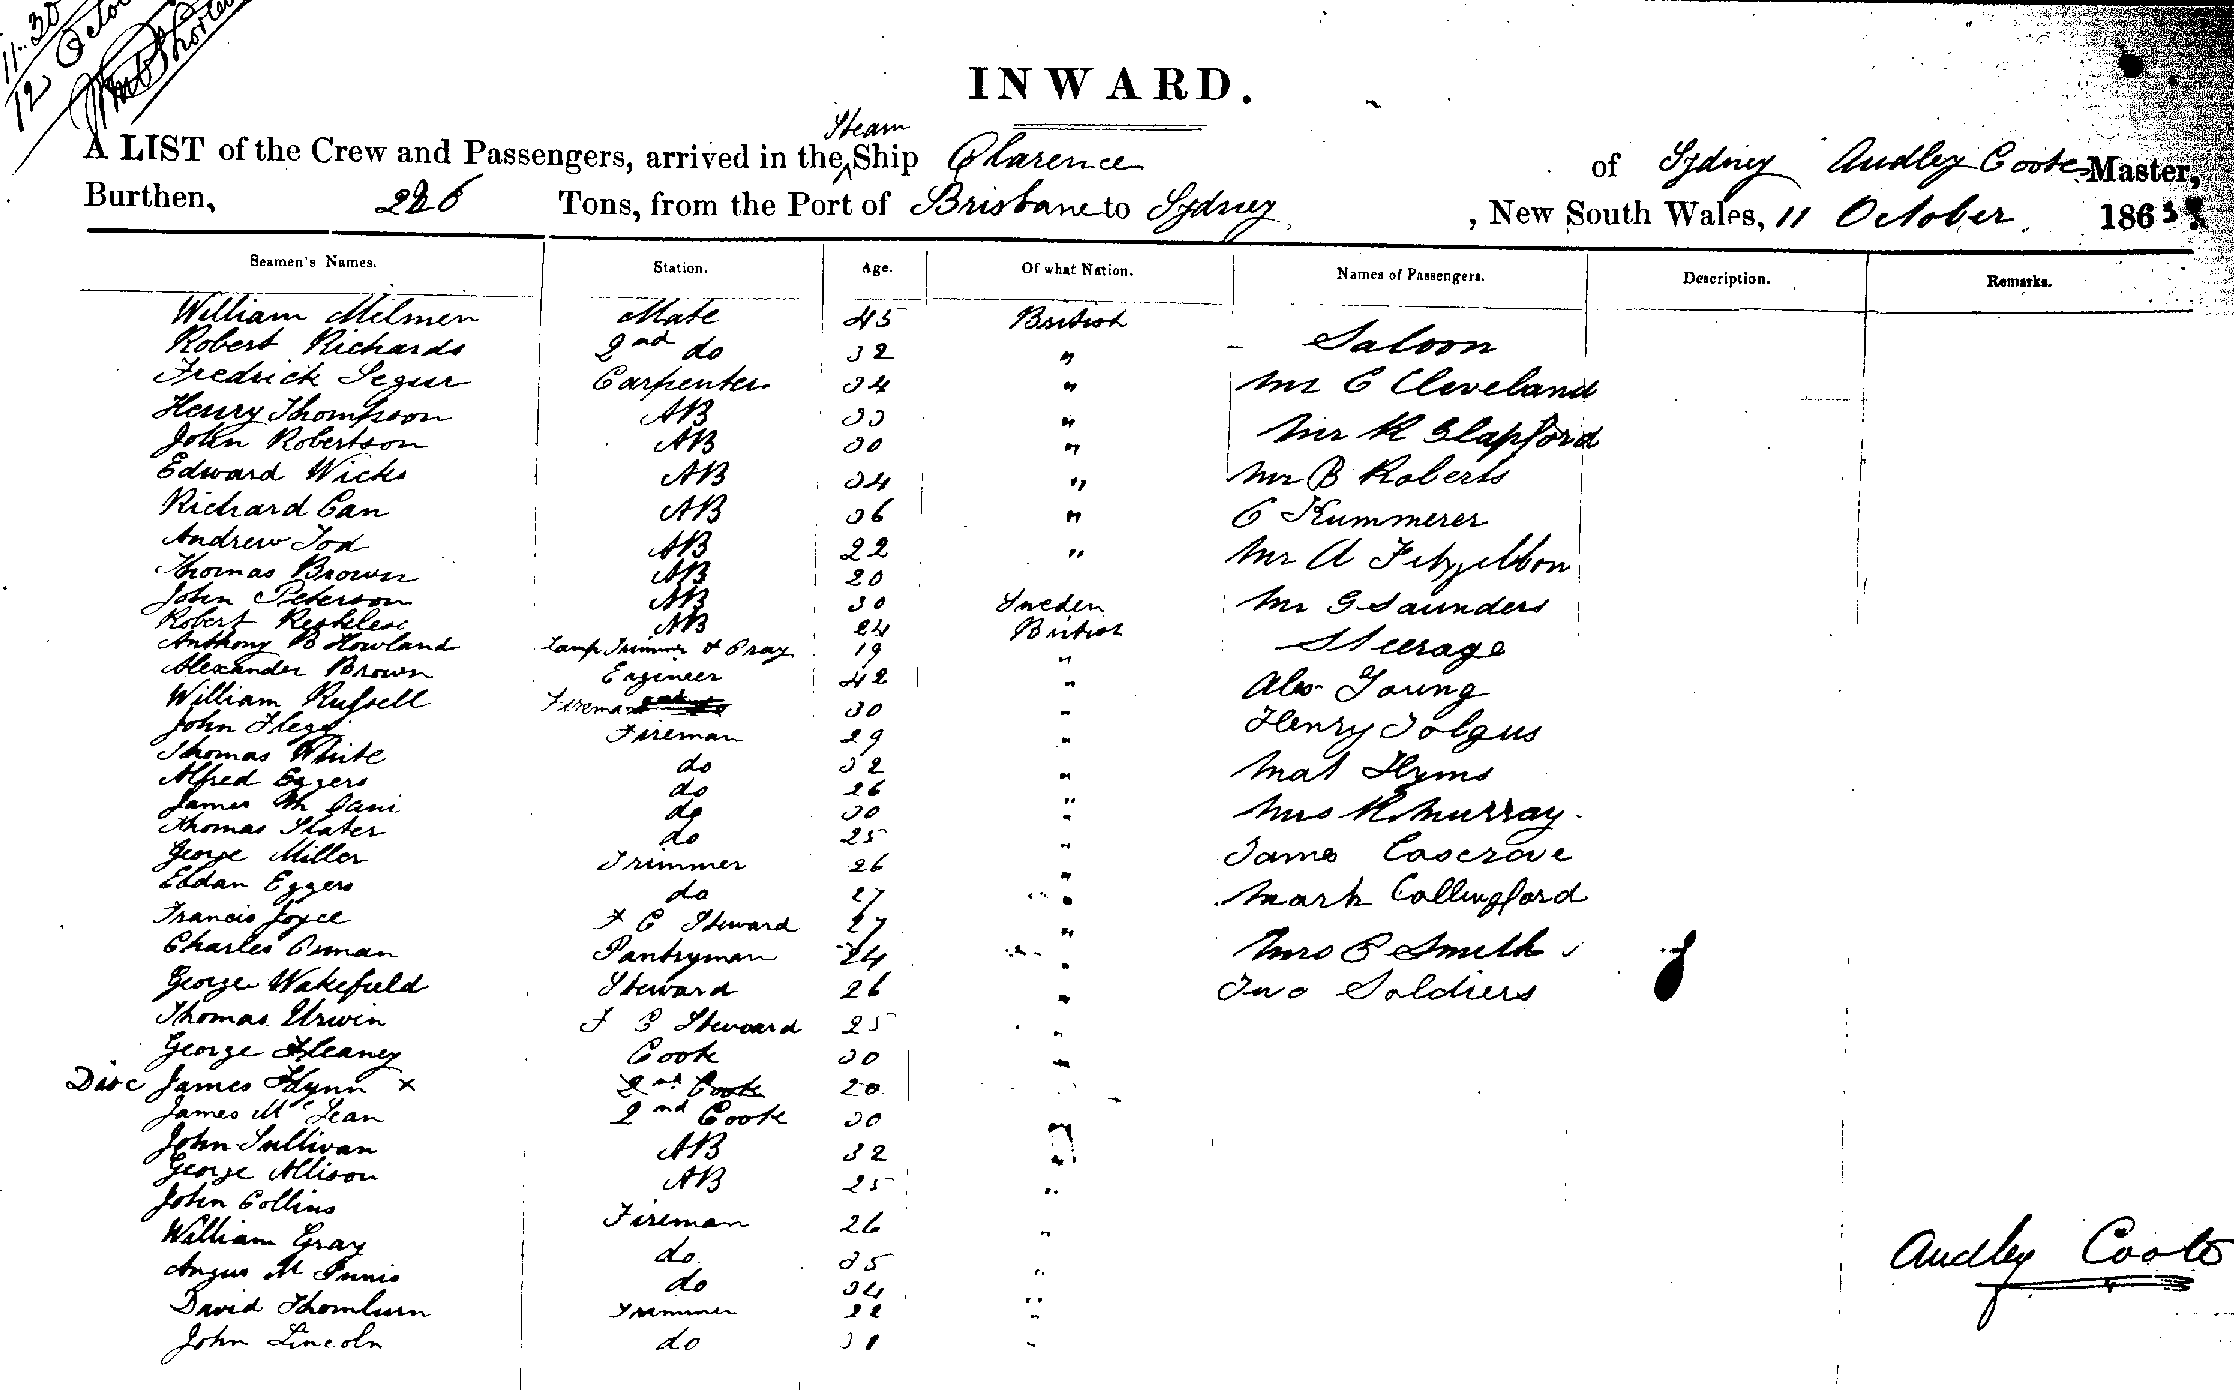 11.30
12 Octo
INWARD.
A LIST of the Crew and Passengers, arrived in the Steam Ship Clarence of Sydney Audley Coote Master,
Burthen, 226 Tons, from the Port of Brisbane to Sydney, New South Wales, 11 October 1863
Seamen's Names. Station. Age. Of what Nation. Names of Passengers. Description. Remarks.
William Melmen Mate 45 British
Robert Richards 2nd do 32 " Saloon
Fredrick Segur Carpenter 34 " Mr C Cleveland
Henry Thompson AB 33 " Mr R Glapford
John Robertson AB 30 "
Edward Wicks AB 34 " Mr B Roberts
Richard Can AB 36 " C Kummerer
Andrew Tod AB 22 " Mr A Fitzgibbon
Thomas Brown AB 20
John Peterson AB 30 Sweden Mr G Saunders
Robert AB 24 British
Anthony B Howland Lamp Trimmer & 19 " Steerage
Alexander Brown Engineer 42 " Alex Young
William Russell Fireman 30 "
John Flegg Fireman 29 " Henry Tolgus
Thomas White do 32 " Mat Hyms
Alfred Eggers do 26
James Mc do 30 " Mrs R Murray
Thomas Slater do 25 "
George Miller Trimmer 26 " James Cosgrove
Eldan Eggers do 27 " Mark Collingford
Francis Joyce F C Steward 27 "
Charles Osman Pantryman 24 " Mrs C Smith
George Wakefield Steward 26 " Two Soldiers
Thomas Urwin F C Steward 25 "
George Heaney Cook 30 "
Disc James Flynn x 2nd Cook 20
James Mc Lean 2nd Cook 30 "
John Sullivan AB 32 "
George Allison AB 25 "
John Collins Fireman 26 "
William Gray do 35 "
Angus Mc Innis do 34 "
David Thornburn Trimmer 22 "
John Lincoln do 31 "
Audley Coote